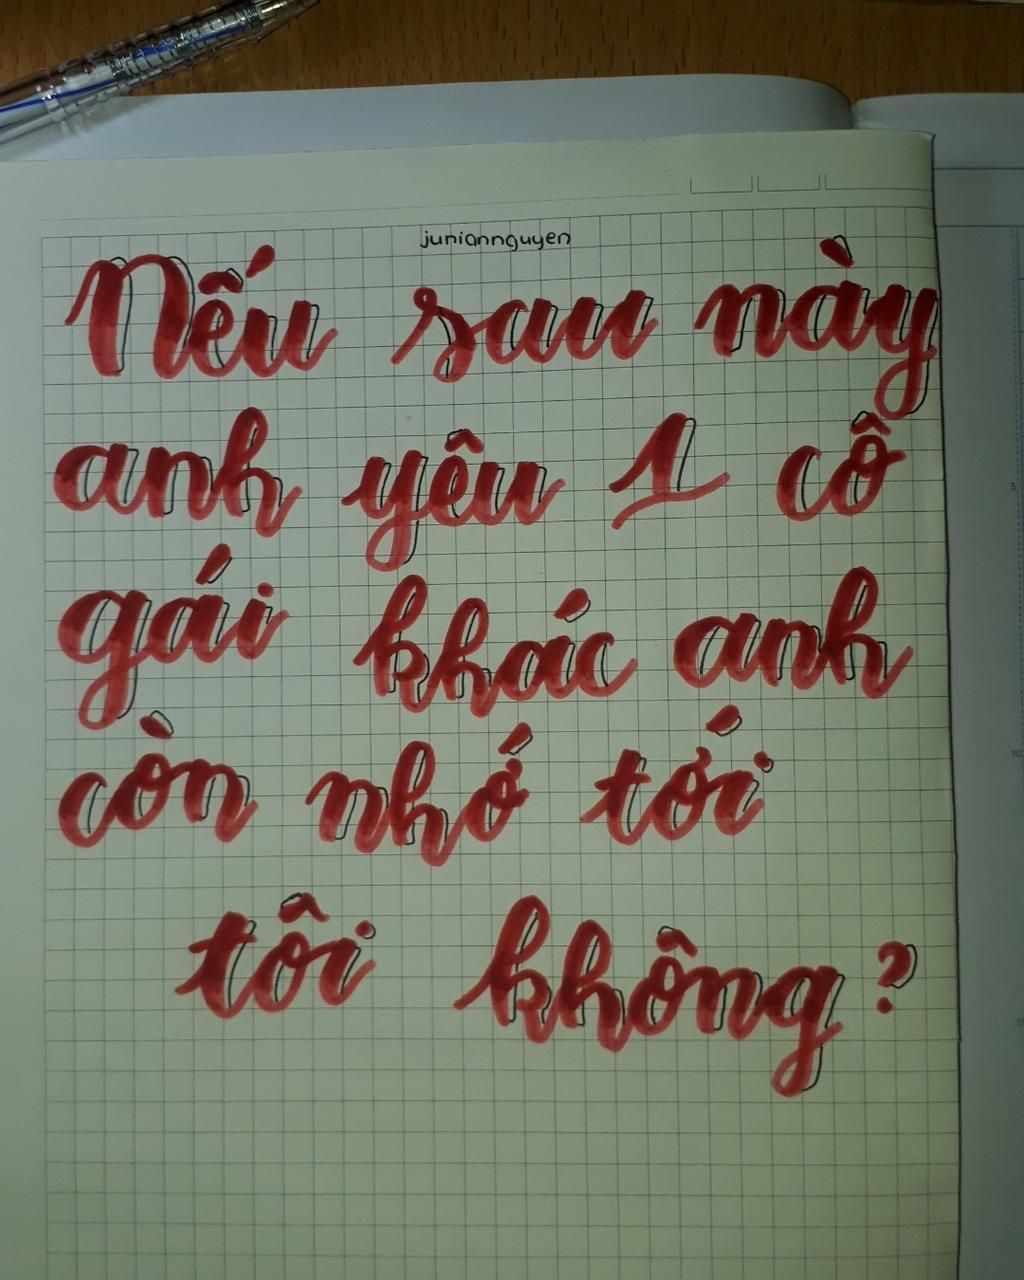 juniannguyen
Nếu sau này
anh yêu 1 cô
gái khác anh
còn nhớ tới
tôi không?